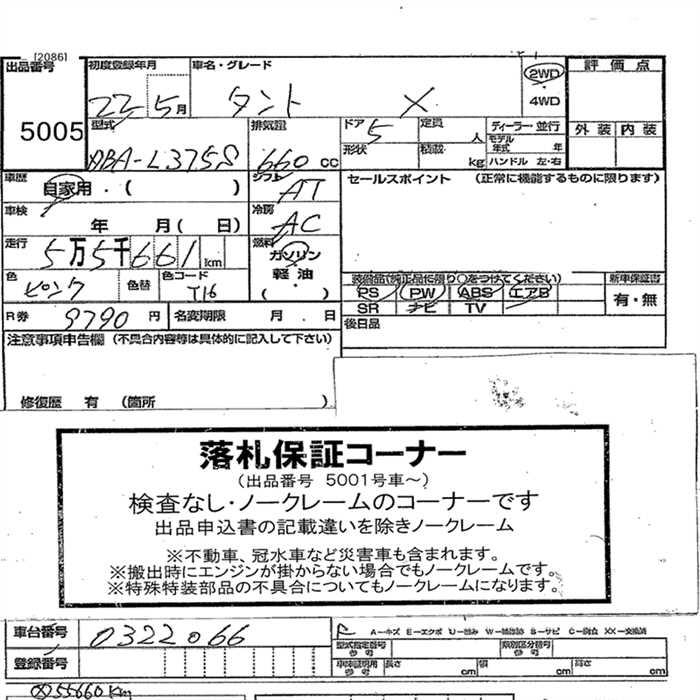 [2086]
出品番号 初度登録年月 車名・グレード 2WD 評価点
22 5月 タント X 4WD
5005 外装 内装
型式 排気量 ドア 定員 ディーラー・並行
ABA-L375S 660 CC 5 人 モデル年式 年
形状 積載 kg ハンドル 左・右
車歴 シフト セールスポイント (正常に機能するものに限ります)
自家用・( ) AT
車検 冷房
年 月( 日) AC
走行 燃料
5万5千661km ガソリン
色 色替 色コード 軽油 装備品(純正品に限り○をつけてください) 新車保証書
ピンク T16 ・( ) PS PW ABS エアB 有・無
SR ナビ TV
R券 9790円 名変期限 月 日 後日品
注意事項申告欄 (不具合内容等は具体的に記入して下さい)
修復歴 有 (箇所 )
落札保証コーナー
(出品番号 5001号車~)
検査なし・ノークレームのコーナーです
出品申込書の記載違いを除きノークレーム
※不動車、冠水車など災害車も含まれます。
※搬出時にエンジンが掛からない場合でもノークレームです。
※特殊特装部品の不具合についてもノークレームになります。
車台番号 0322066 A-キズ E-エクボ U-凹み W-補修跡 S-サビ C-腐食 XX-交換済
登録番号 型式指定番号 参考 類別区分番号 参考
車検証明用 参考 長さ cm 幅 cm 高さ cm
55660km